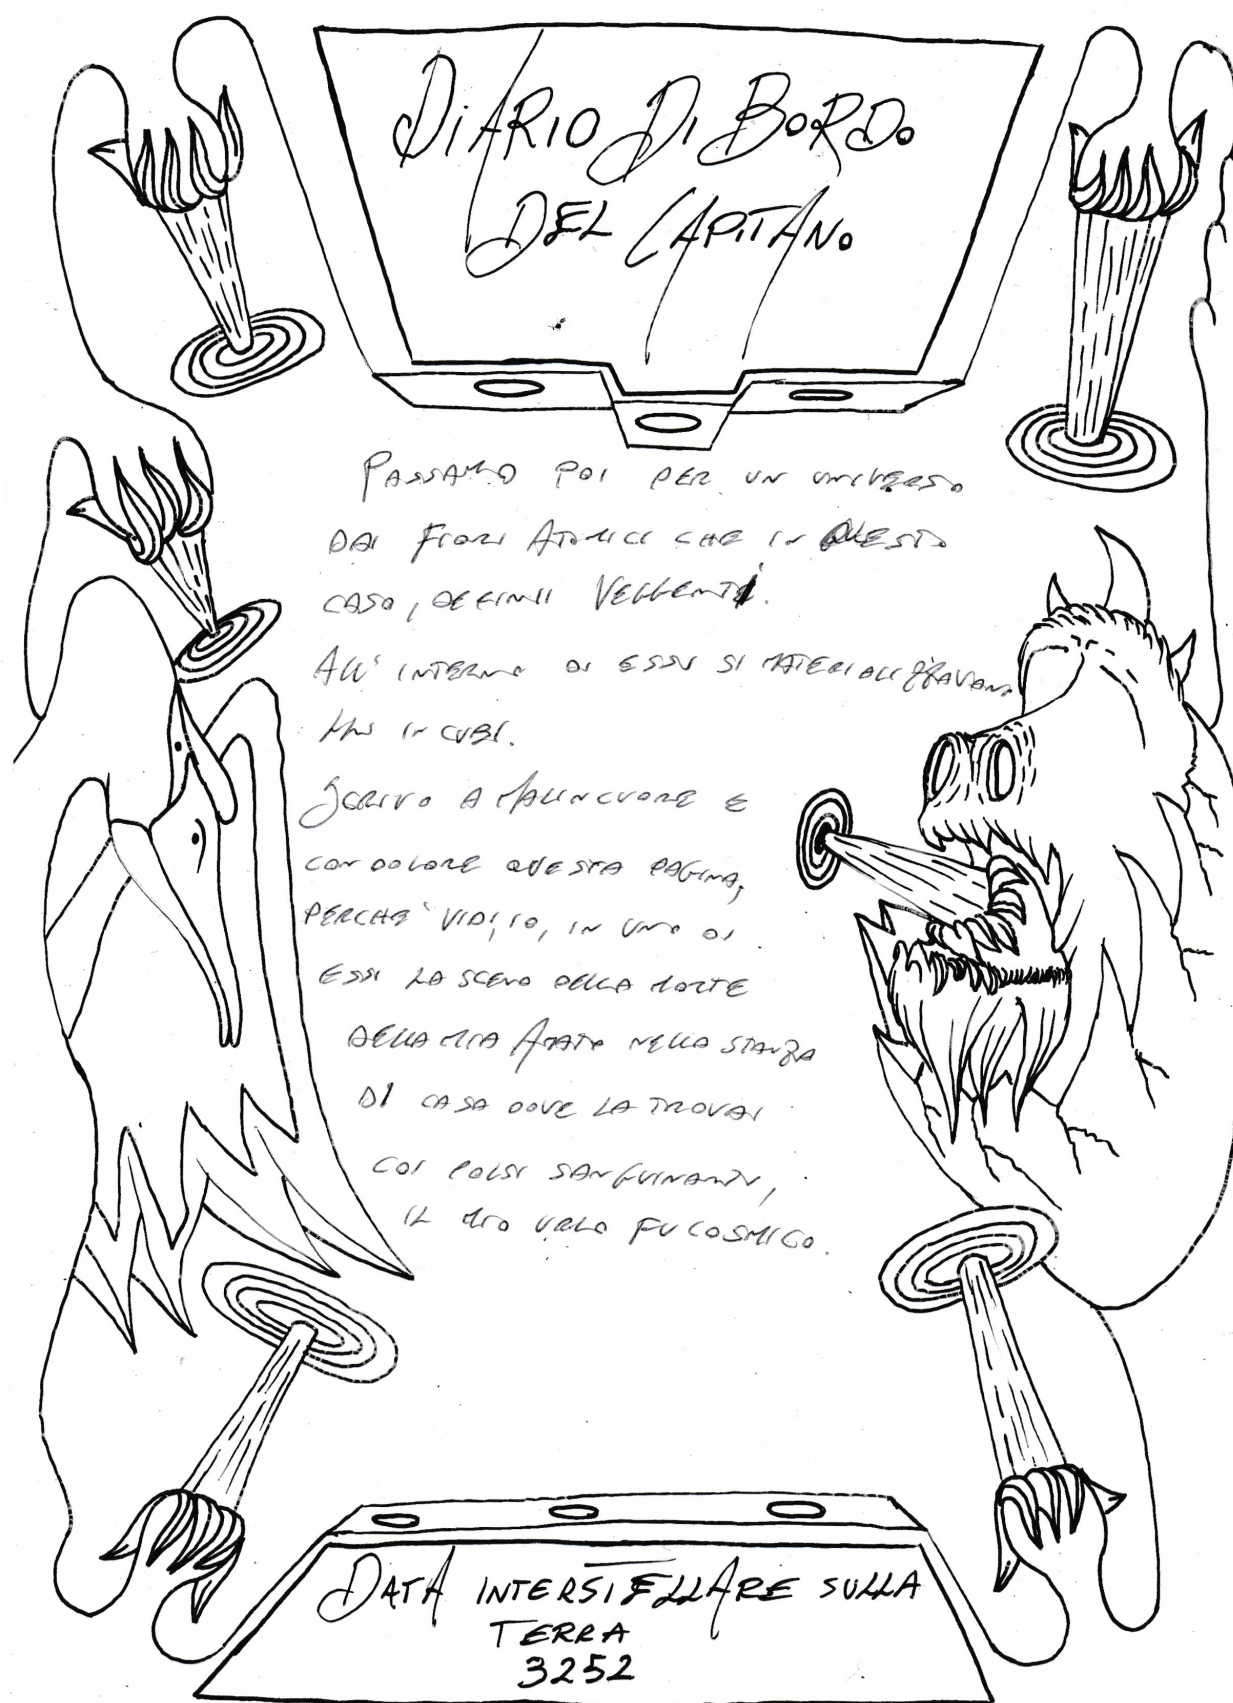 DIARIO DI BORDO
DEL CAPITANO
PASSAMMO POI PER UN UNIVERSO
DAI FIORI ATOMICI CHE IN QUESTO
CASO, DEFINII VEGGENTI.
ALL'INTERNO DI ESSI SI MATERIALIZZAVANO
INCUBI.
SCRIVO A MALINCUORE E
CON DOLORE QUESTA PAGINA,
PERCHE' VIDI, IO, IN UNO DI
ESSI LA SCENA DELLA MORTE
DELLA MIA AMATA NELLA STANZA
DI CASA DOVE LA TROVAI
COI POLSI SANGUINANTI,
IL MIO URLO FU COSMICO.
DATA INTERSTELLARE SULLA
TERRA
3252